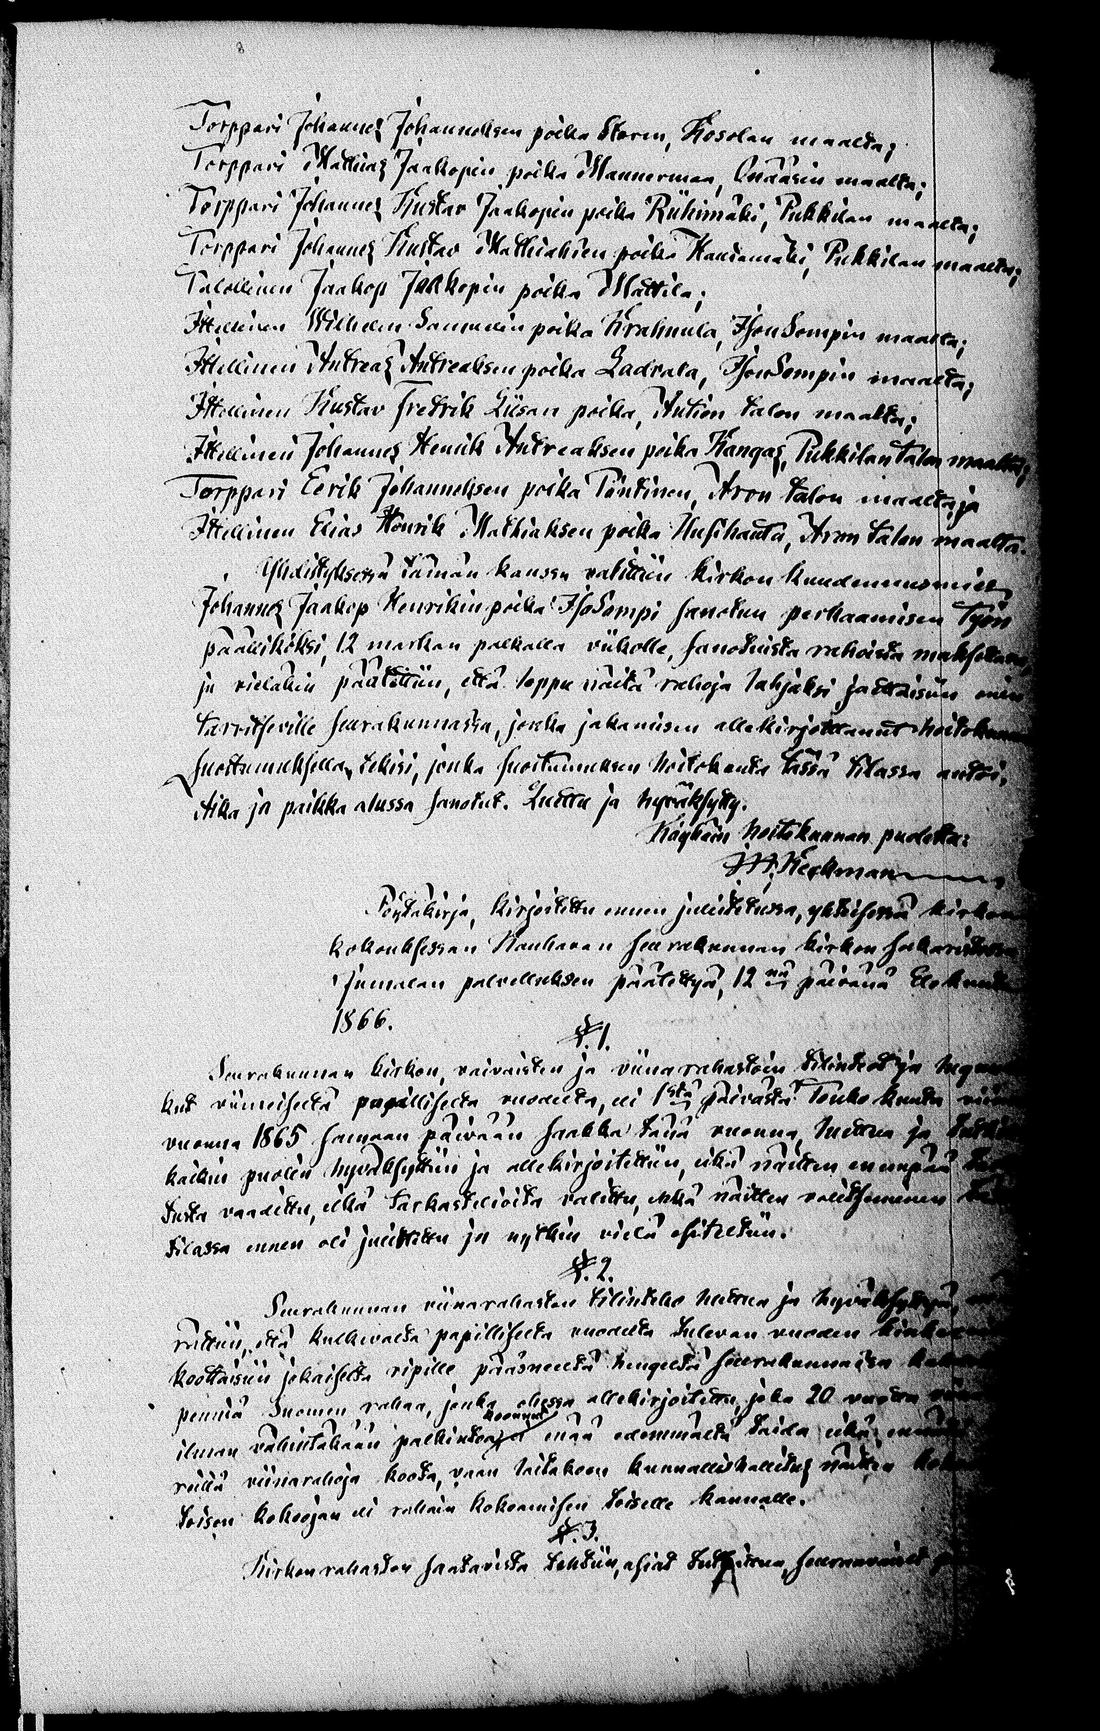 Torppari Johannes Johanneksen poika Storm, Kosolan maalta;
Torppari Mathias Jaakopin poika Mannermaa, maalta;
Torppari Johannes Kustav Jaakopin poika Riihimäki, Pukkilan maalta;
Torppari Johannes Kustav Mathiaksen poika Pukkilan maalta;
Talollinen Jaakop Jaakopin poika Mattila;
Itellinen Wilhelm Samuelin poika Krahnula, IsonSompin maalta;
Itellinen Antreas Antreaksen poika Ladvala, IsonSompin maalta;
Itellinen Kustav Fretrik Liisan poika, Antion talon maalta;
Itellinen Johannes Henrik Antreaksen poika Kangas, Pukkilan talon maalta;
Torppari Eerik Johanneksen poika Töntinen, Aron talon maalta, ja
Itellinen Elias Henrik Mathiaksen poika Huhihauta, Aron talon maalta.
Yhdistyksessä tämän kanssa valittiin kirkon kuudennusmies
Johannes Jaakop Henrikin poika IsoSompi sanotun perkaamisen työn
päälliköksi, 12 markan palkalla viikolle, sanotuista rahoista maksettava,
ja vieläkin päätettiin, että loppu näitä rahoja lahjaksi jaettaisiin enin
tarvitseville seurakunnassa, jonka jakamisen allekirjoittanut hoitokunnan
suostumuksella, tekisi, jonka suostumuksen hoitokunta tässä tilassa antoi.
Aika ja paikka alussa sanotut. Luettu ja hyväksytty.
Köyhäin hoitokunnan puolesta:
Heckman
Pöytäkirja, kirjoitettu ennen julistetussa, yhteisessä kirkon
kokouksessa Kauhavan seurakunnan kirkon sakaristossa
Jumalan palvelluksen päätettyä, 12 nä päivänä Elokuuta
1866.
§.1.
Seurakunnan kirkon, vaivaisten ja viinarahastoin tilinteot ja
kut viimeiseltä papilliselta vuodelta, eli 1stä päivästä Touko kuuta
vuonna 1865 samaan päivään saakka tänä vuonna, luettua ja
kaikin puolin hyväksyttiin ja allekirjoitettiin, eikä näitten enempää
tusta vaadittu, eikä tarkastelioita valittu, vaikka näitten valitsemenen
tilassa ennen oli julistettu ja nytkin vielä esiteltiin.
§.2.
Seurakunnan viinarahaston tilinteko luettua ja hyväksyttyä,
rättiin, että kulkevalta papilliselta vuodelta tulevan vuoden
koottaisiin jokaiselta ripille päässeeltä hengeltä seurakunnassa
penniä Suomen rahaa, jonka ohessa allekirjoitettu, joka 20 vuotta
ilman vähintäkään palkintoa koonnut enää edemmältä taida eikä
reillä viinarahoja koota, vaan laitakoon kunnallishallitus näitten
toisen kokoojan eli rahain kokoamisen toiselle kannalle.
§.3.
Kirkon rahaston saatavista tehtiin, asiat